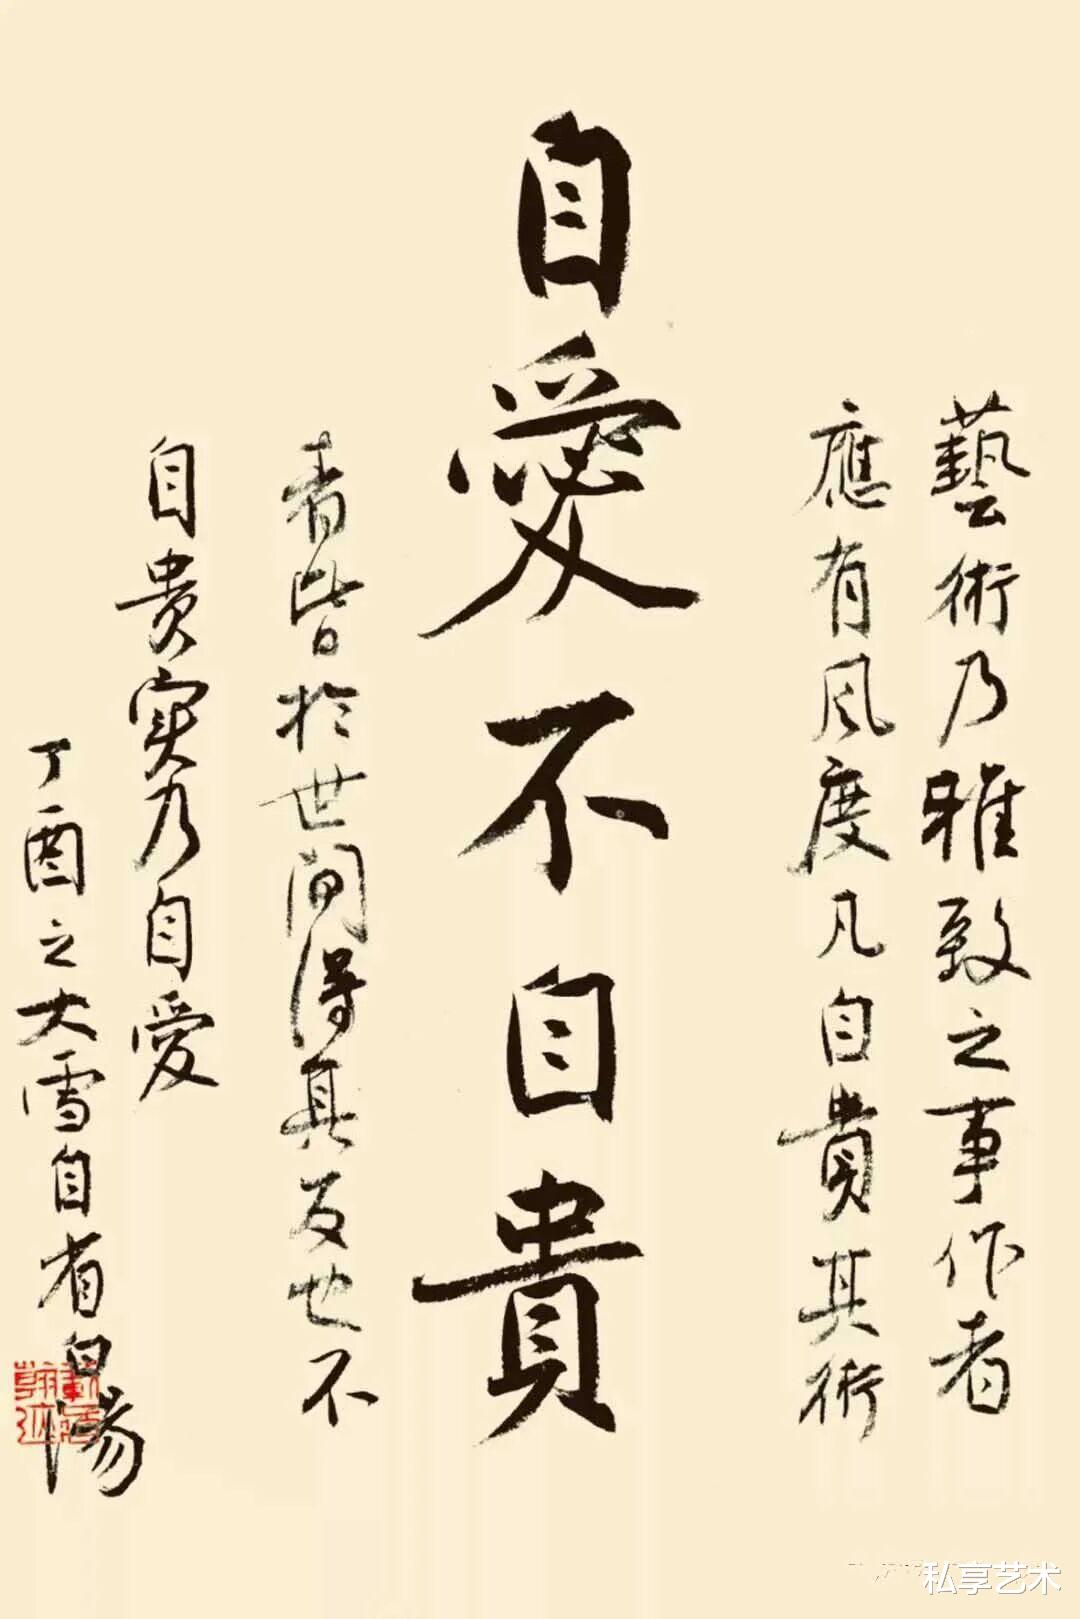 藝術乃雅致之事作者
應有風度凡自貴其術
自愛不自貴
者皆於世間得其反也不
自貴実乃自愛
丁酉之大雪自省白陽
私享艺术